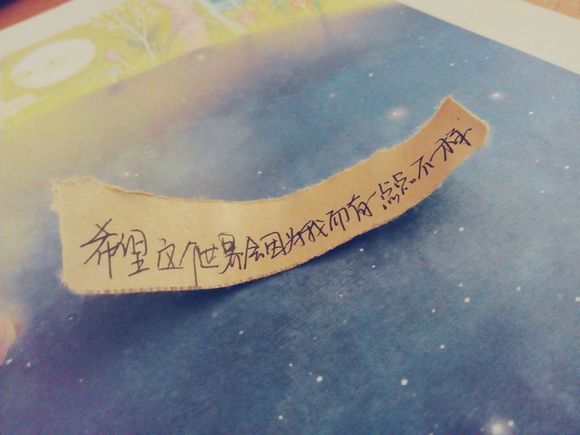 希望这个世界会因为我而有一点点不一样